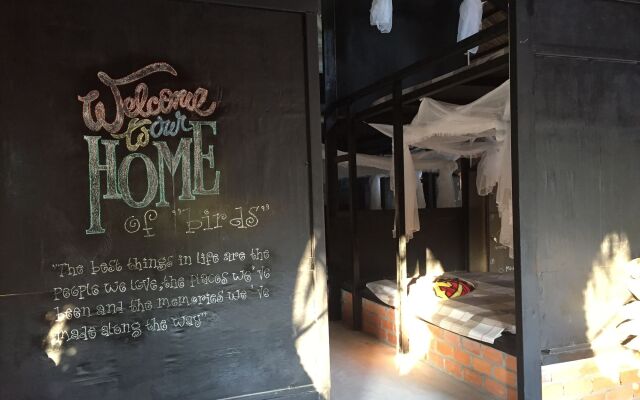 Welcome
to our
HOME
of "birds"
"The best things in life are the
People we love, the places we've
been and the memories we've
made along the way"